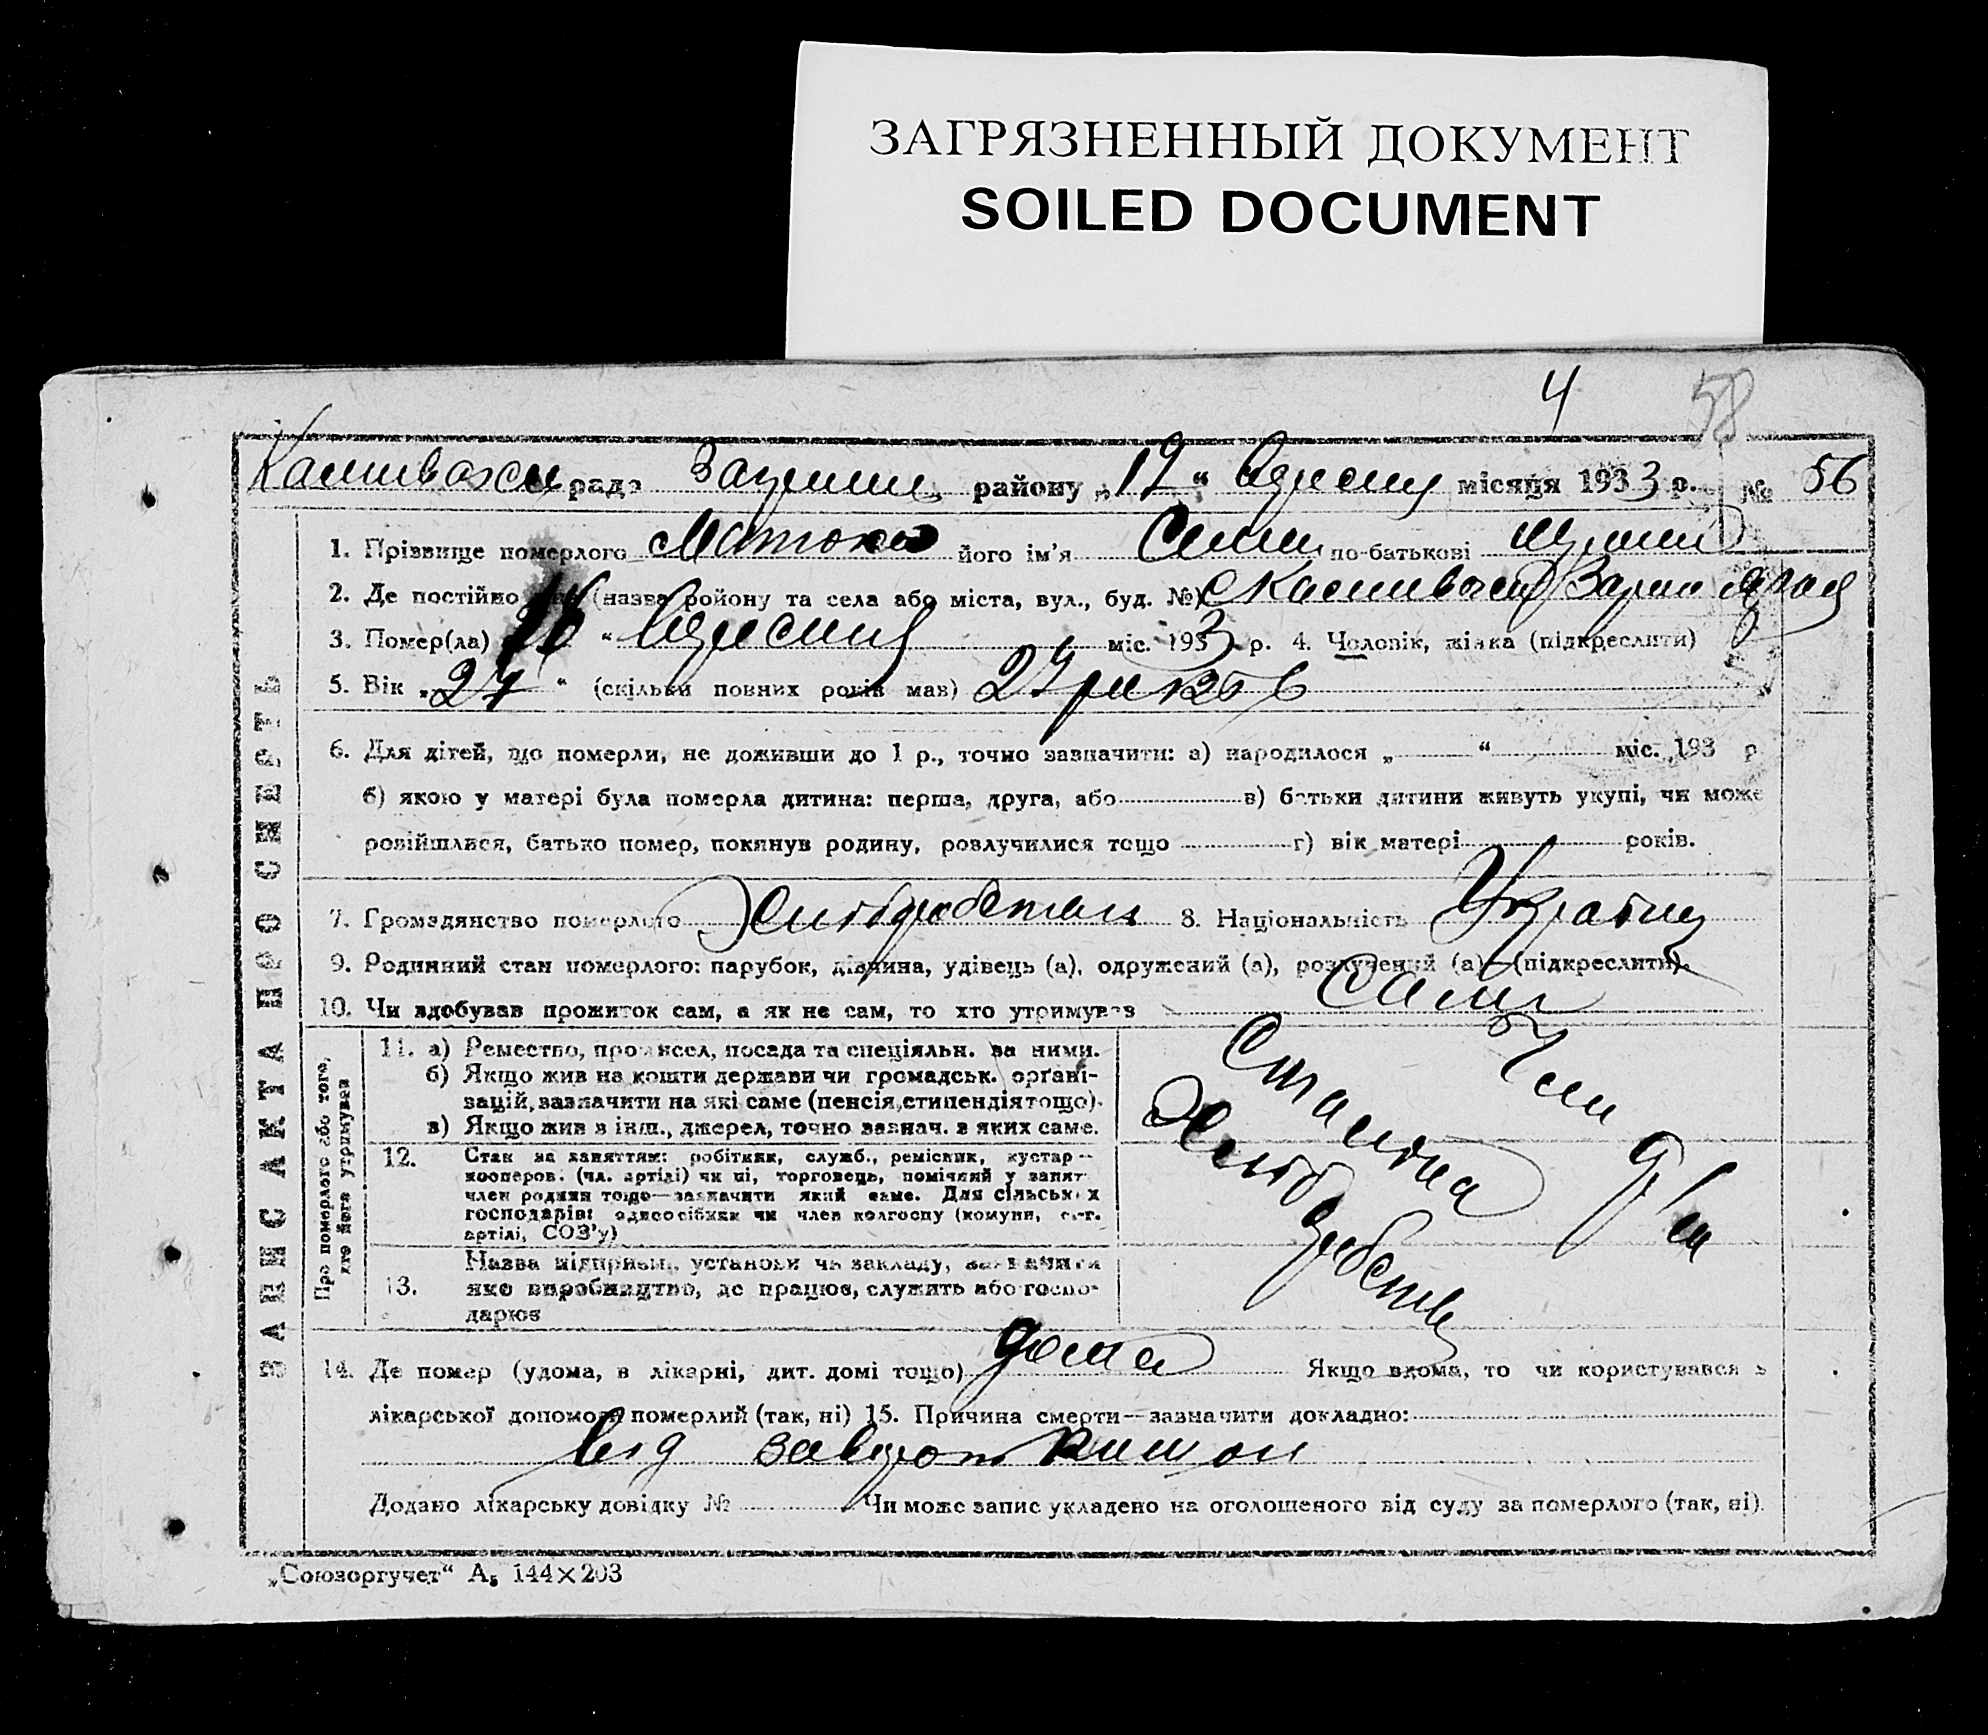 ЗАГРЯЗНЕННЫЙ ДОКУМЕНТ
SOILED DOCUMENT
4 58
рада району „12“ Вересня місяця 1933 р. № 56
1. Прізвище померлого його ім'я Семен по-батькові
2. Де постійно (назва ройону та села або міста, вул., буд. №)
3. Помер(ла) 16 “ Вересня міс. 1933 р. 4. Чоловік, жінка (підкреслити)
5. Вік „27“ (скільки повних років мав) 27 років
6. Для дітей, що померли, не доживши до 1 р., точно зазначити: а) народилося „ “ міс. 193 р
б) якою у матері була померла дитина: перша, друга, або в) батьки дитини живуть укупі, чи може
розійшлися, батько помер, покинув родину, розлучилися тощо г) вік матері років.
7. Громадянство померлого Хлібороб 8. Національність Українец
9. Родинний стан померлого: парубок, дівчина, удівець (а), одружений (а), розлучений (а) — (підкреслити).
10. Чи здобував прожиток сам, а як не сам, то хто утримував сам
ЗАПИС АКТА ПРО СМЕРТЬ
Про померлого або того, хто його утримував
11. а) Ремество, промисел, посада та спеціяльн. за ними.
б) Якщо жив на кошти держави чи громадськ. орґані-
зацій, зазначити на які саме (пенсія, стипендія тощо).
в) Якщо жив з інш., джерел, точно зазнач. з яких саме.
12. Стан за заняттям: робітник, служб., ремісник, кустар—
кооперов. (чл. артілі) чи ні, торговець, помічний у занят
член родини тощо—зазначити який саме. Для сільськ х
господарів: односсібник чи член колгоспу (комуни, с.-г.
артілі, СОЗ'у)
13. Назва підприєм., установи чи закладу, зазначити
яке виробництво, де працює, служить або госпо-
дарює
14. Де помер (удома, в лікарні, дит. домі тощо) дома Якщо вдома, то чи користувався з
лікарської допомоги померлий (так, ні) 15. Причина смерти—зазначити докладно:
від заворот кишок
Додано лікарську довідку № Чи може запис укладено на оголошеного від суду за померлого (так, ні).
„Союзоргучет“ А₅ 144×203